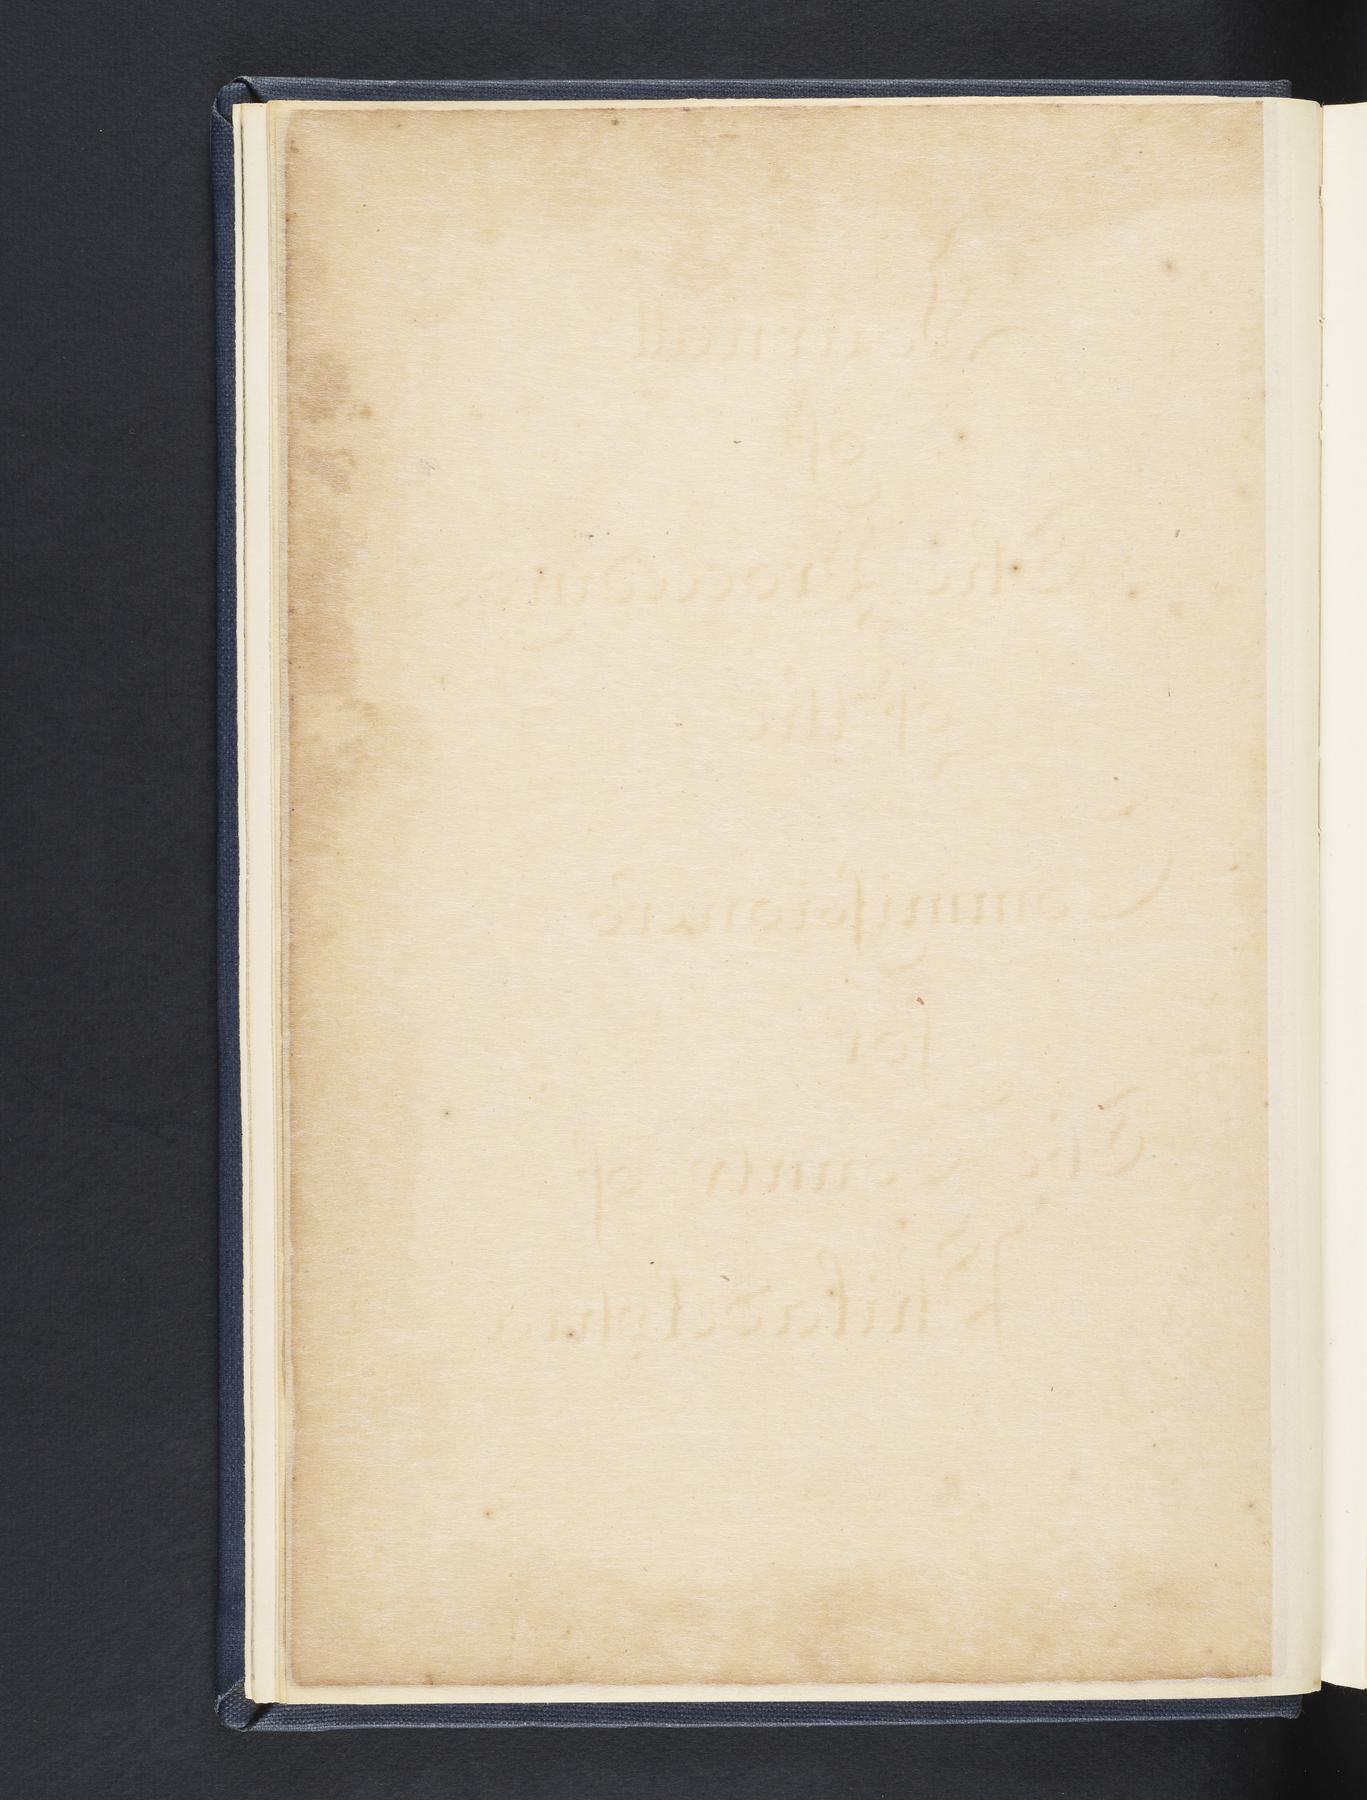 Journall
of
The Proceedings
of the
Commissioners
for
The County of
Philadelphia